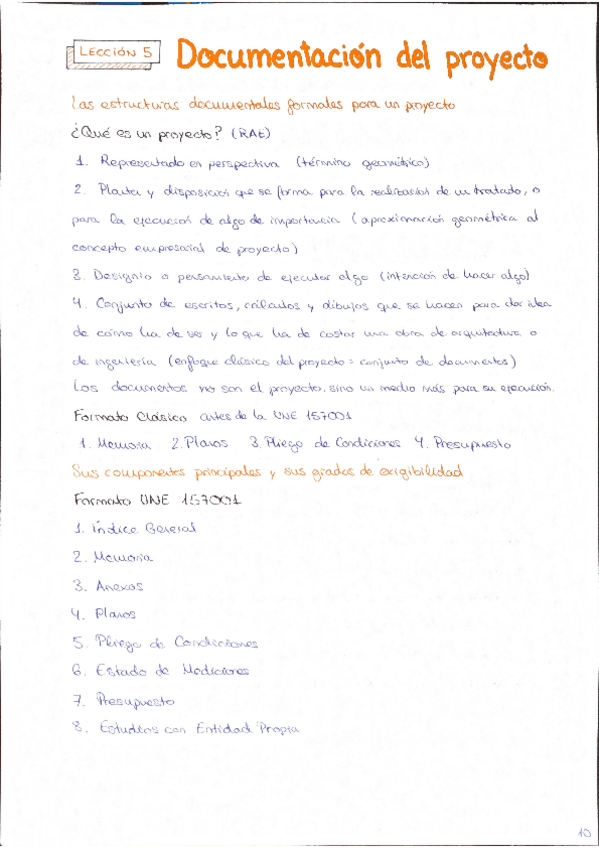 LECCIÓN 5
Documentación del proyecto
Las estructuras documentales formales para un proyecto
¿Qué es un proyecto? (RAE)
1. Representado en perspectiva (término geométrico)
2. Planta y disposición que se forma para la realización de un tratado, o
para la ejecución de algo de importancia (aproximación geométrica al
concepto empresarial de proyecto)
3. Designio o pensamiento de ejecutar algo (intención de hacer algo)
4. Conjunto de escritos, cálculos y dibujos que se hacen para dar idea
de cómo ha de ser y lo que ha de costar una obra de arquitectura o
de ingeniería (enfoque clásico del proyecto = conjunto de documentos)
Los documentos no son el proyecto, sino un medio más para su ejecución.
Formato Clásico antes de la UNE 157001
1. Memoria 2. Planos 3. Pliego de Condiciones 4. Presupuesto
Sus componentes principales y sus grados de exigibilidad
Formato UNE 157001
1. Índice General
2. Memoria
3. Anexos
4. Planos
5. Pliego de Condiciones
6. Estado de Mediciones
7. Presupuesto
8. Estudios con Entidad Propia
10